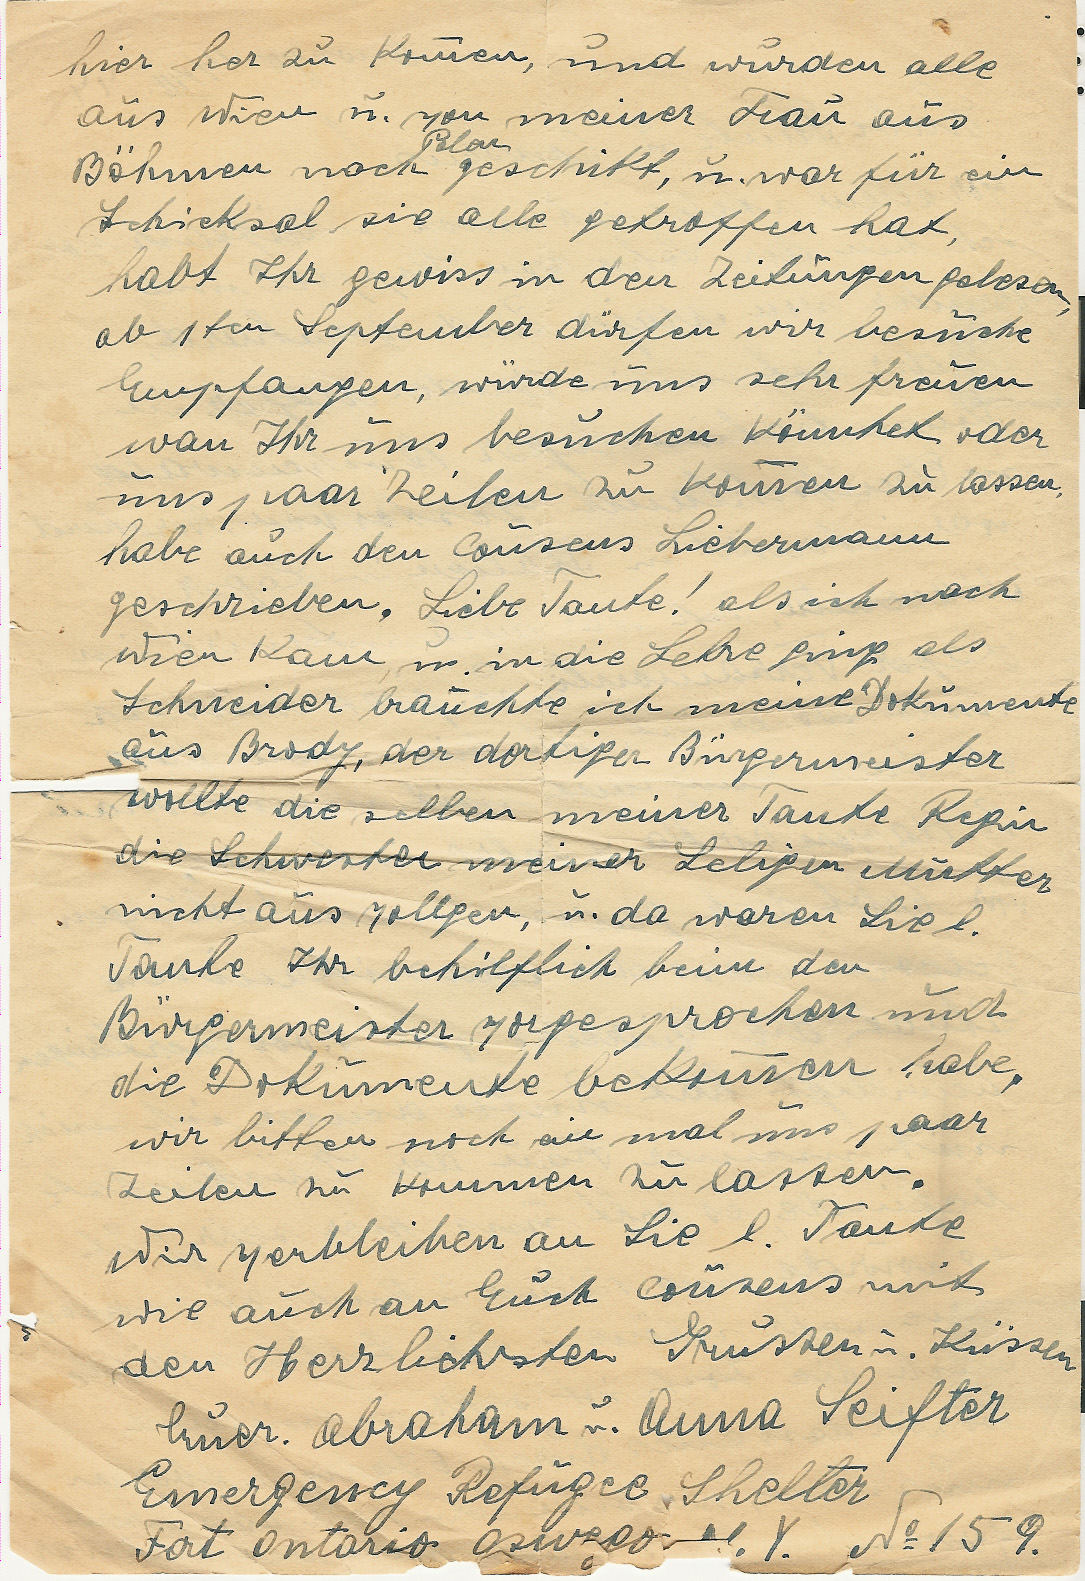 hier her zu kom̄en, und wurden alle
aus Wien u. von meiner Frau aus
Böhmen nach Polen geschikt, u. war für ein
Schicksal sie alle getroffen hat,
habt Ihr gewiss in den Zeitungen gelesen,
ab 1ten September dürfen wir besuche
Empfangen, würde uns sehr freuen
wan Ihr uns besuchen könntet oder
uns paar Zeilen zu kom̄en zu lassen,
habe auch den Cousens Liebermann
geschrieben. Liebe Tante! als ich nach
Wien kam, u. in die Lehre ging als
Schneider brauchte ich meine Dokumente
aus Brody, der dortiger Bürgermeister
wollte die selben meiner Tante Regin
die Schwester meiner Seligen Mutter
nicht aus vollgen, u. da waren Sie l.
Tante Ihr behilflich beim den
Bürgermeister vorgesprochen und
die Dokumente bekom̄en habe,
wir bitten noch ein mal uns paar
Zeilen zu kommen zu lassen.
Wir verbleiben an Sie l. Tante
wie auch an Euch Cousens mit
den Herzlichsten Grussen u. Küssen
Euer. Abraham u. Anna Seifter
Emergency Refugee Shelter
Fort Ontario Oswego N. Y. No 159.